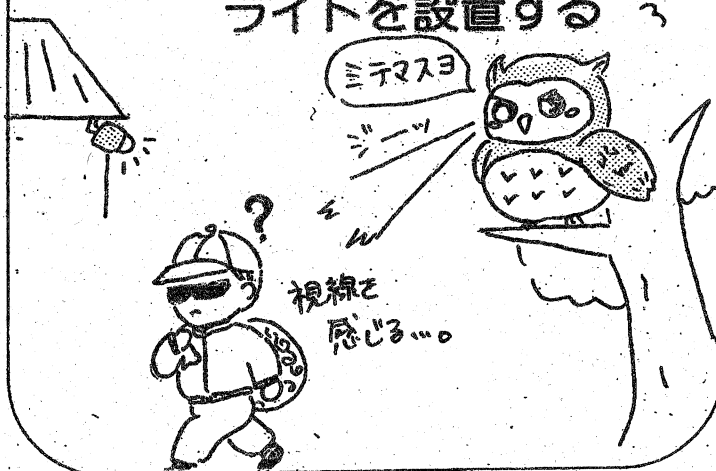 ライトを設置する
ミテマスヨ
ジーッ
?
視線を
感じる…。